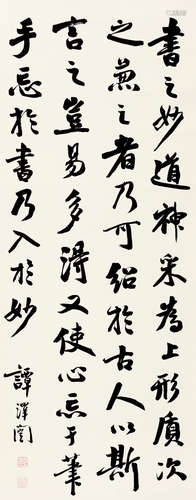 書之妙道神采為上形質次
之兼之者乃可紹於古人以斯
言之豈易多得又使心忘于筆
手忘於書乃入於妙
譚澤闓